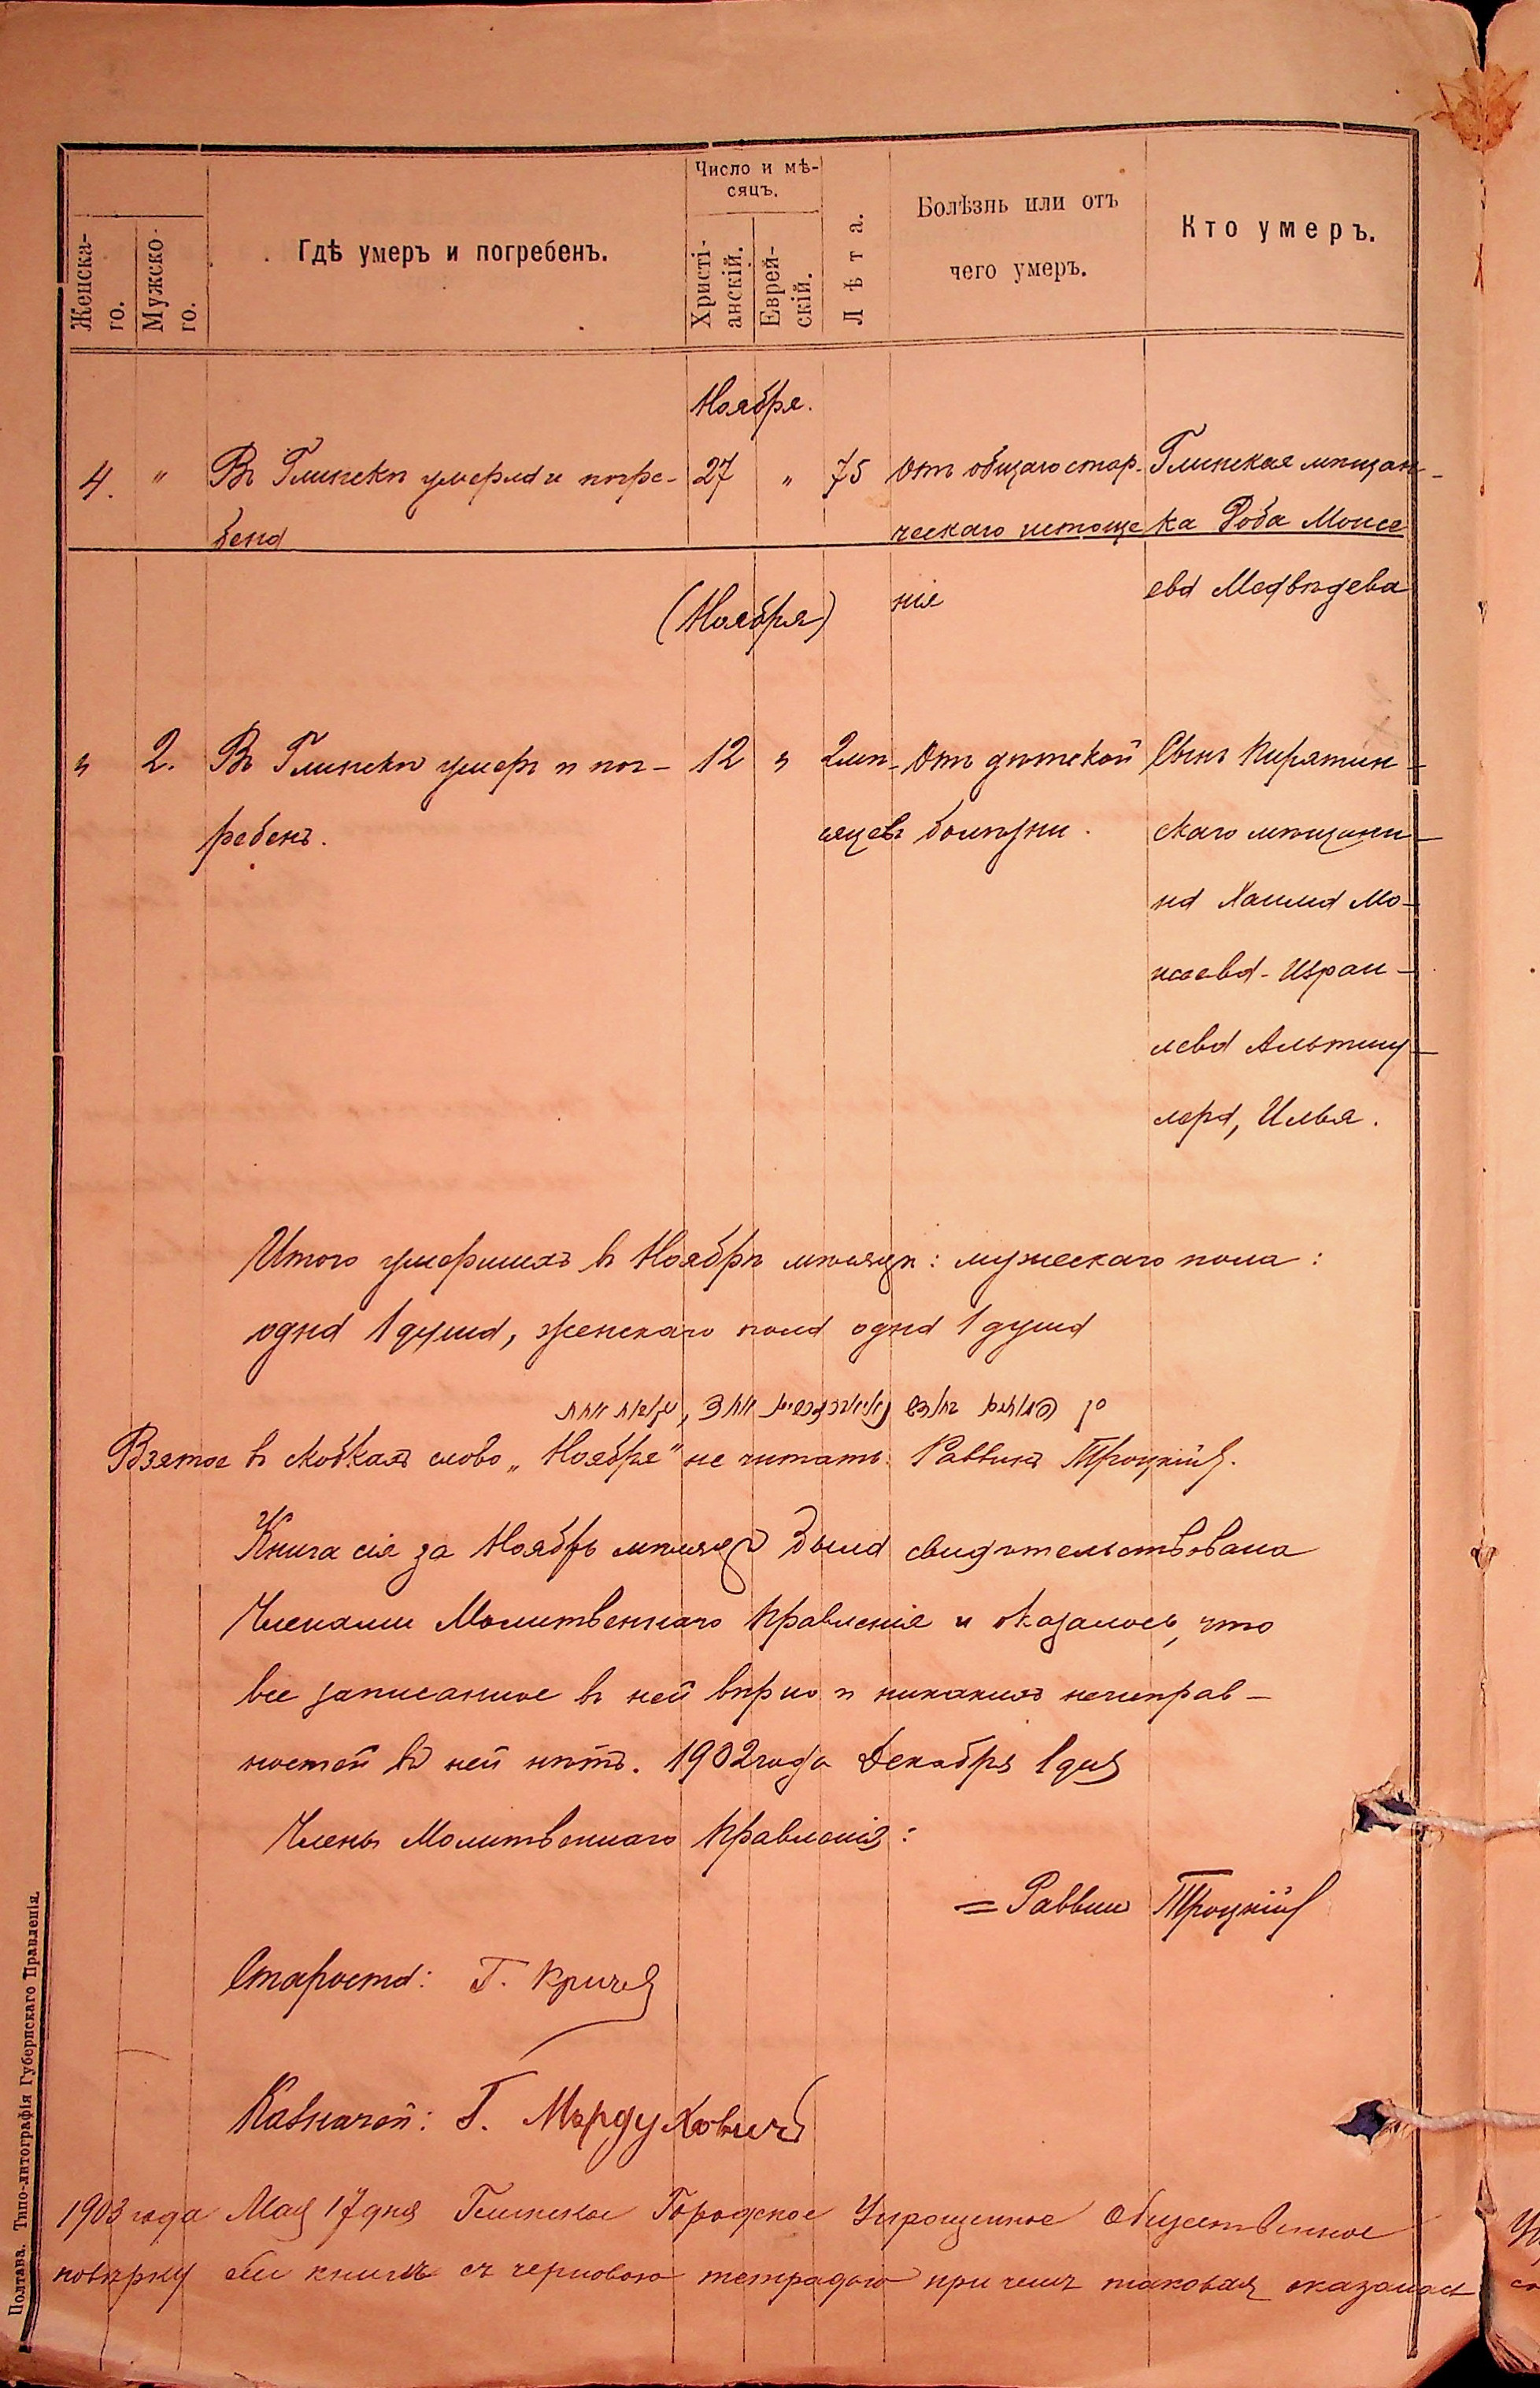 Женска-
го.
Мужско-
го.
Гдѣ умеръ и погребенъ.
Число и мѣ-
сяцъ.
Христі-
анскій.
Еврей-
скій.
Лѣта.
Болѣзнь или отъ
чего умеръ.
Кто умеръ.
Ноября.
4. " Въ Глинскѣ умерла и погре- 27 " 75 Отъ общаго стар- Глинская мѣщан-
бена ческаго истоще ка Роба Моисе
нія ева Медвѣдева
(Ноября)
" 2. Въ Глинскѣ умеръ и пог- 12 " 2 мѣ- Отъ дѣтской Сынъ Пирятин-
ребенъ. сяцевъ болѣзни. скаго мѣщани-
на Хаима Мо-
исеева-Израи-
лева Альтшу-
лера, Илья.
Итого умершихъ въ Ноябрѣ мѣсяцѣ: мужескаго пола:
одна 1 душа, женскаго пола одна 1 душа
Взятое въ скобкахъ слово „Ноября" не читать. Раввинъ Троцкій.
Книга сія за Ноябрь мѣсяцъ была свидѣтельствована
Членами Молитвеннаго Правленія и оказалось, что
все записанное въ ней вѣрно и никакихъ неисправ-
ностей въ ней нѣтъ. 1902 года Декабря 1 дня
Члены Молитвеннаго Правленія:
= Раввинъ Троцкій
Староста: Г. Кричев
Казначей: Г. Мордуховичъ
1903 года Мая 17 дня Глинское Городское Упрощенное Общественное
повѣрку сей книги съ черновою тетрадью при чемъ таковая оказалась
Полтава. Типо-литографія Губернскаго Правленія.